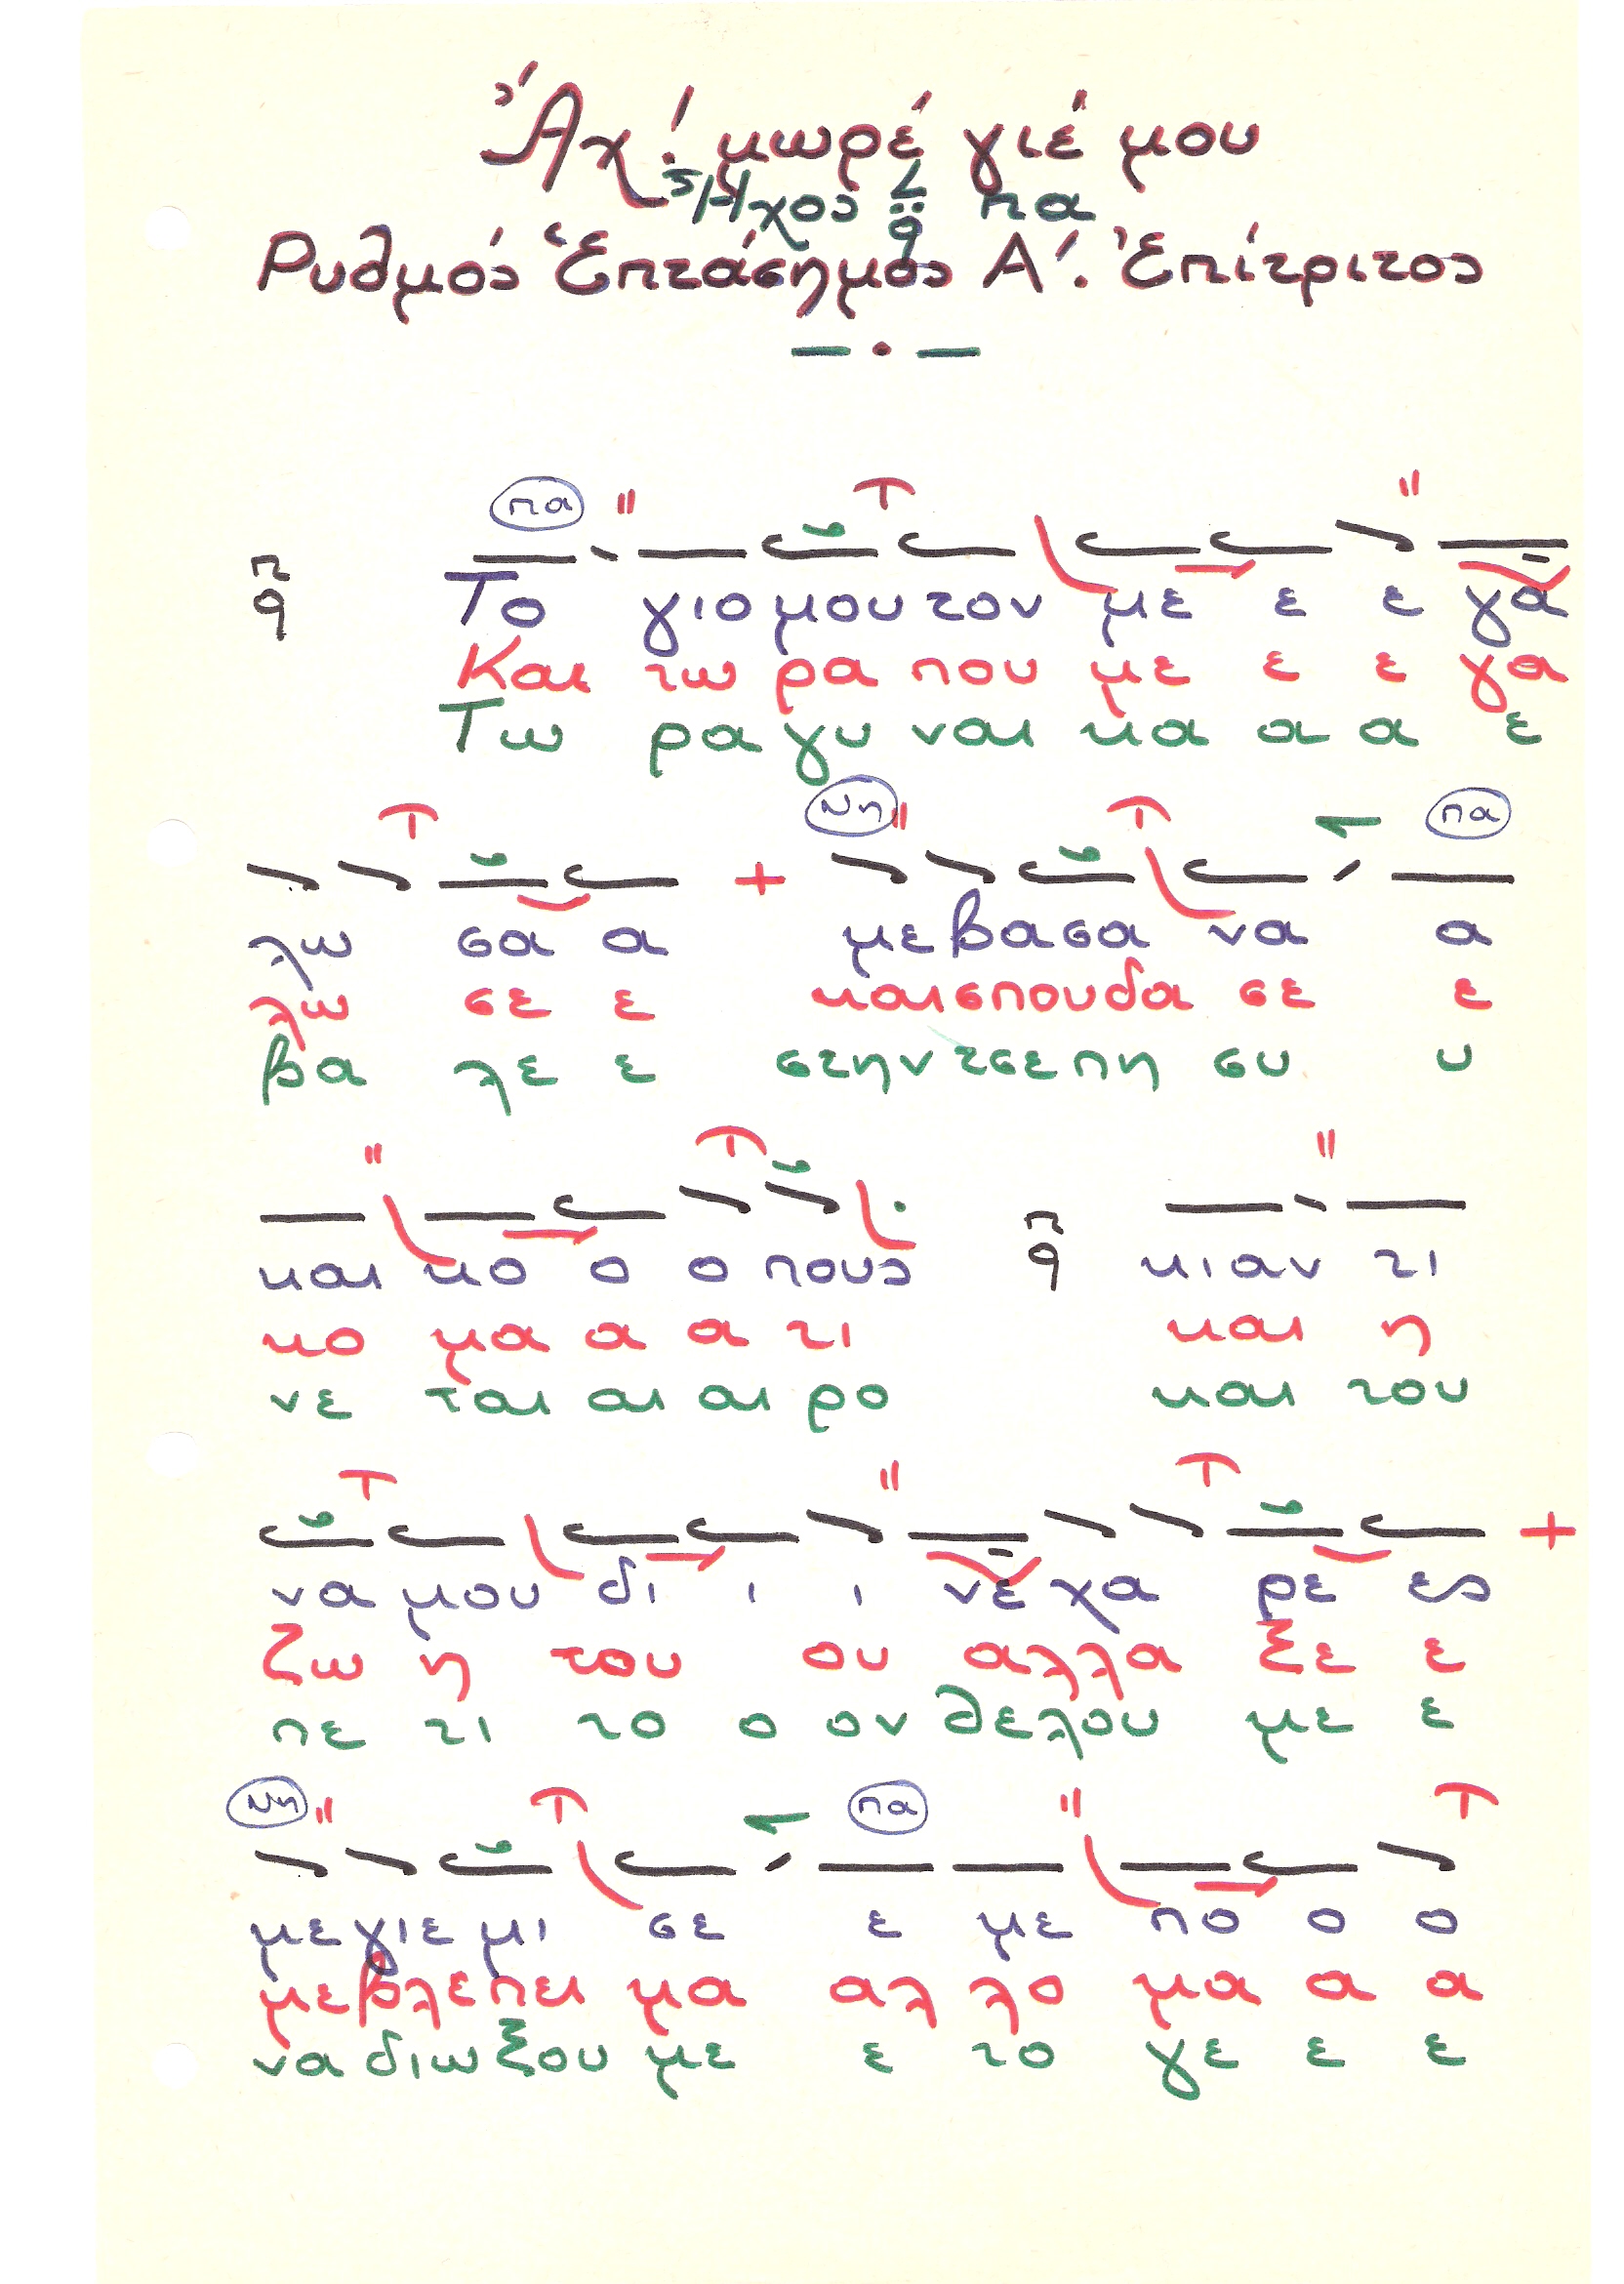 Ἄχ! μωρέ γιέ μου
Ἦχος πα
Ρυθμός Ἑπτάσημος Α΄. Ἐπίτριτος
πα
Το γιο μου τον με ε ε γα
Και τω ρα που με ε ε γα
Τω ρα γυ ναι κα α α ε
Νη πα
λω σα α με βα σα να α
λω σε ε και σπου δα σε ε
βα λε ε στην τσε πη συ υ
και κο ο ο πους κι αν τι
κο μα α α τι και η
νε ται αι αι ρο και του
να μου δι ι ι νε χα ρε ες
ζω η του ου αλ λα ξε ε
πε τι το ο ον θε λου με ε
Νη πα
με γιε μι σε ε με πο ο ο
με βλε πει μα αλ λο μα α α
να διω ξου με ε το γε ε ε